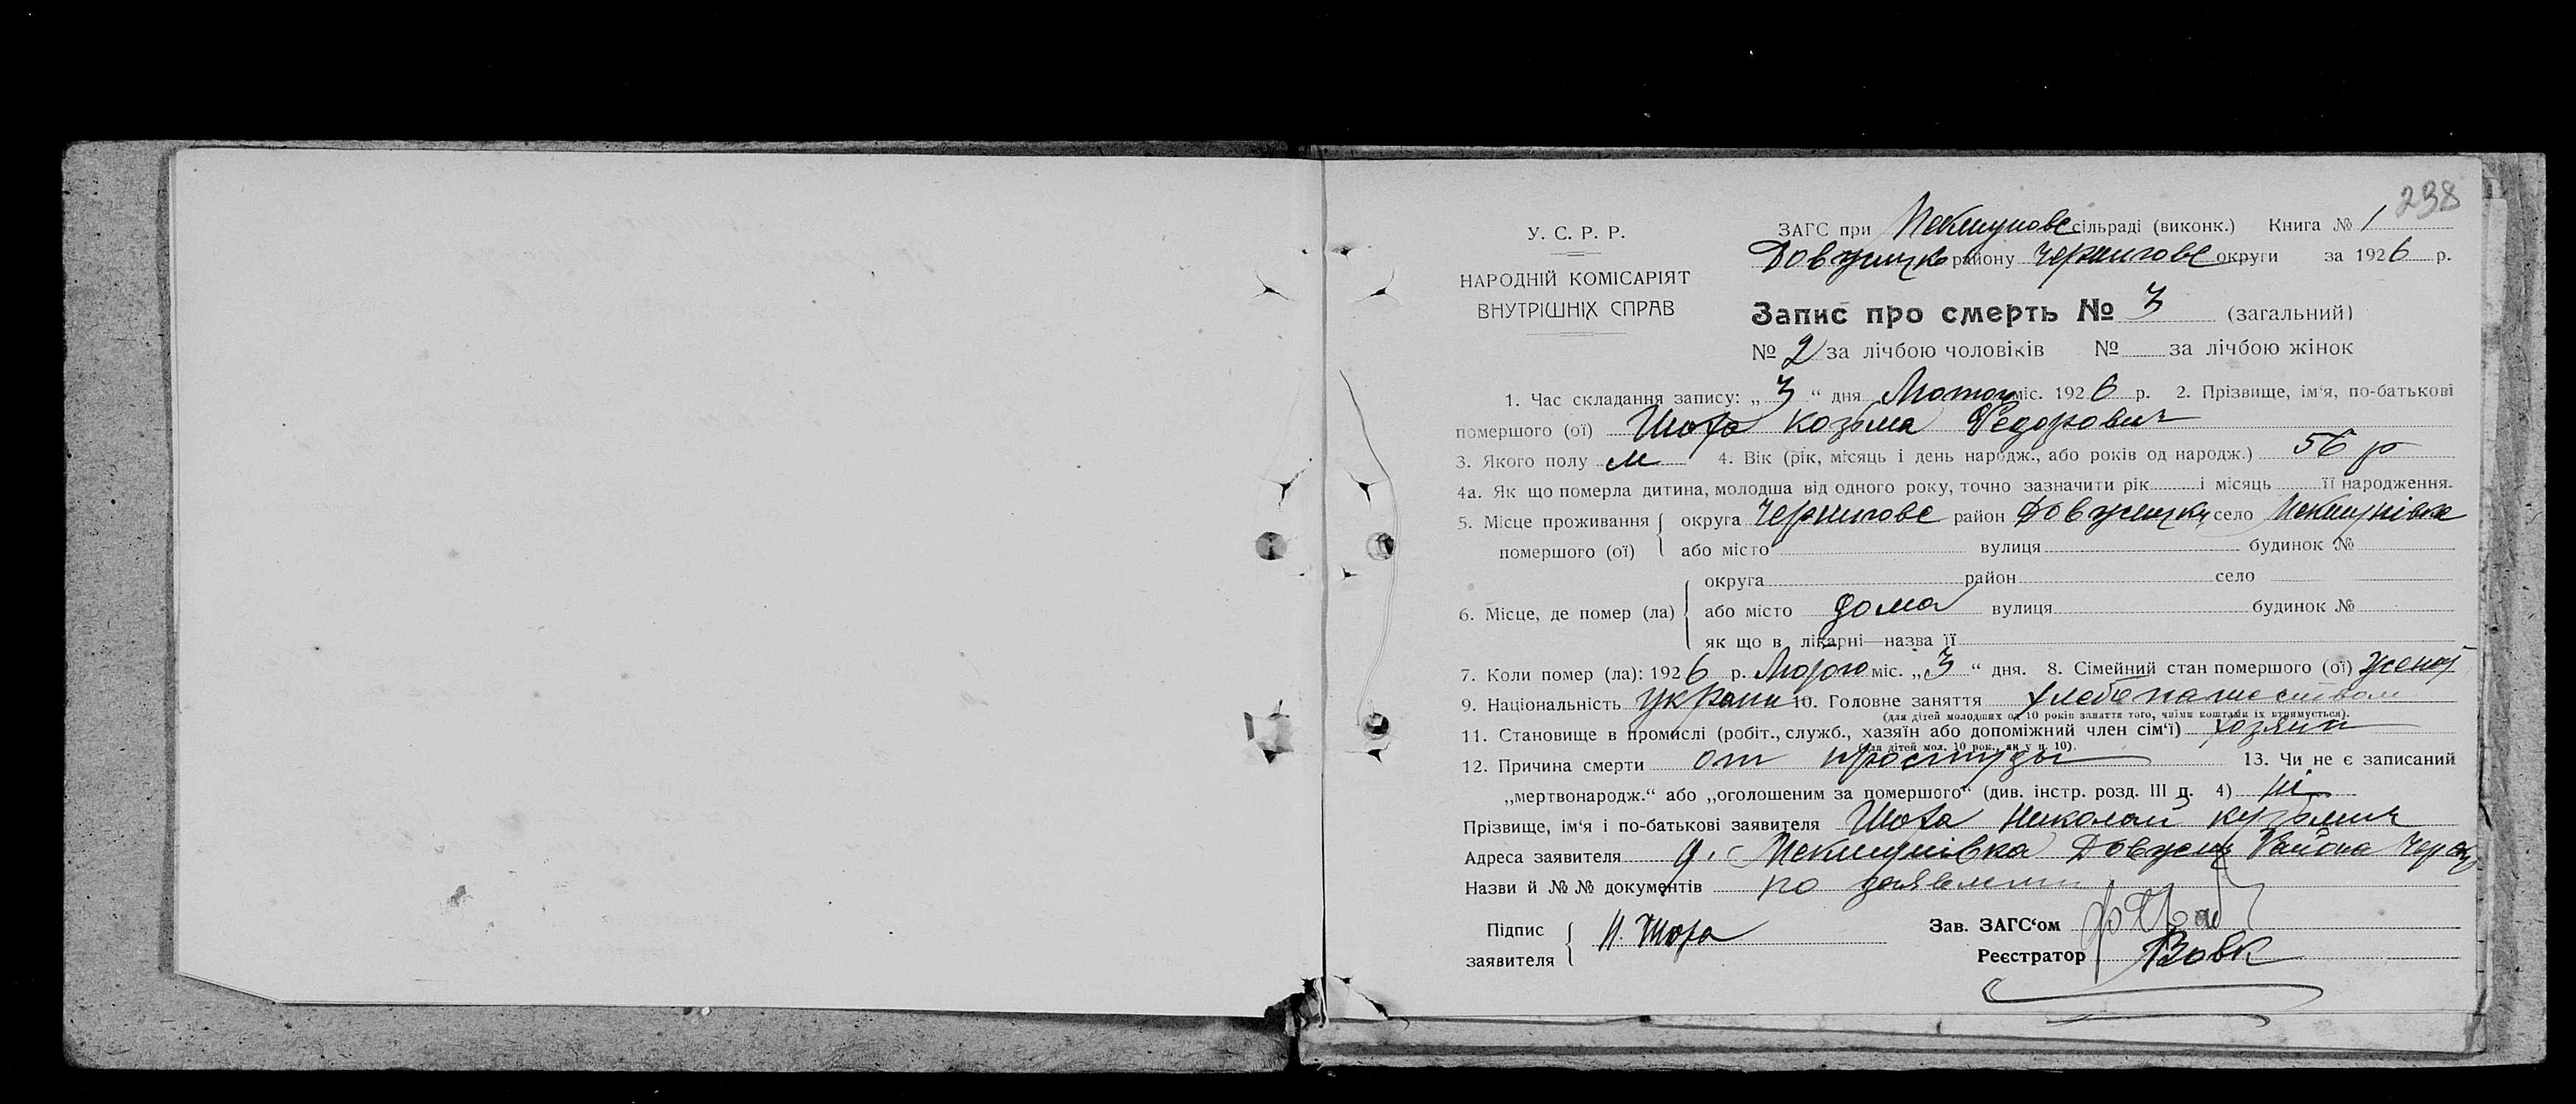 238
У. С. Р. Р.
НАРОДНІЙ КОМІСАРІЯТ
ВНУТРІШНІХ СПРАВ
ЗАГС при сільраді (виконк.) Книга № 1
району Черниговс округи за 1926 р.
Запис про смерть № 3 (загальний)
№ 2 за лічбою чоловіків № за лічбою жінок
1. Час складання запису: „ 3 “ дня міс. 1926 р. 2. Прізвище, ім‘я, по-батькові
помершого (ої) Козьма Федорович
3. Якого полу м 4. Вік (рік, місяць і день народж., або років од народж.) 56 р
4а. Як що померла дитина, молодша від одного року, точно зазначити рік і місяць її народження.
5. Місце проживання помершого (ої) округа Черниговс район село
або місто вулиця будинок №
6. Місце, де помер (ла) округа район село
або місто дома вулиця будинок №
як що в лікарні—назва її
7. Коли помер (ла): 1926 р. міс. „ 3 “ дня. 8. Сімейний стан помершого (ої)
9. Національність 10. Головне заняття
(для дітей молодших од 10 років заняття того, чиїми коштами їх втримується).
11. Становище в промислі (робіт., служб., хазяїн або допоміжний член сім‘ї) хозяин
(для дітей мол. 10 рок., як у п. 10).
12. Причина смерти от простуды 13. Чи не є записаний
„мертвонародж.“ або „оголошеним за помершого“ (див. інстр. розд. III п. 4) ні
Прізвище, ім‘я і по-батькові заявителя Николай
Адреса заявителя Района
Назви й №№ документів по
Підпис заявителя Н.
Зав. ЗАГС‘ом
Реєстратор Вовк